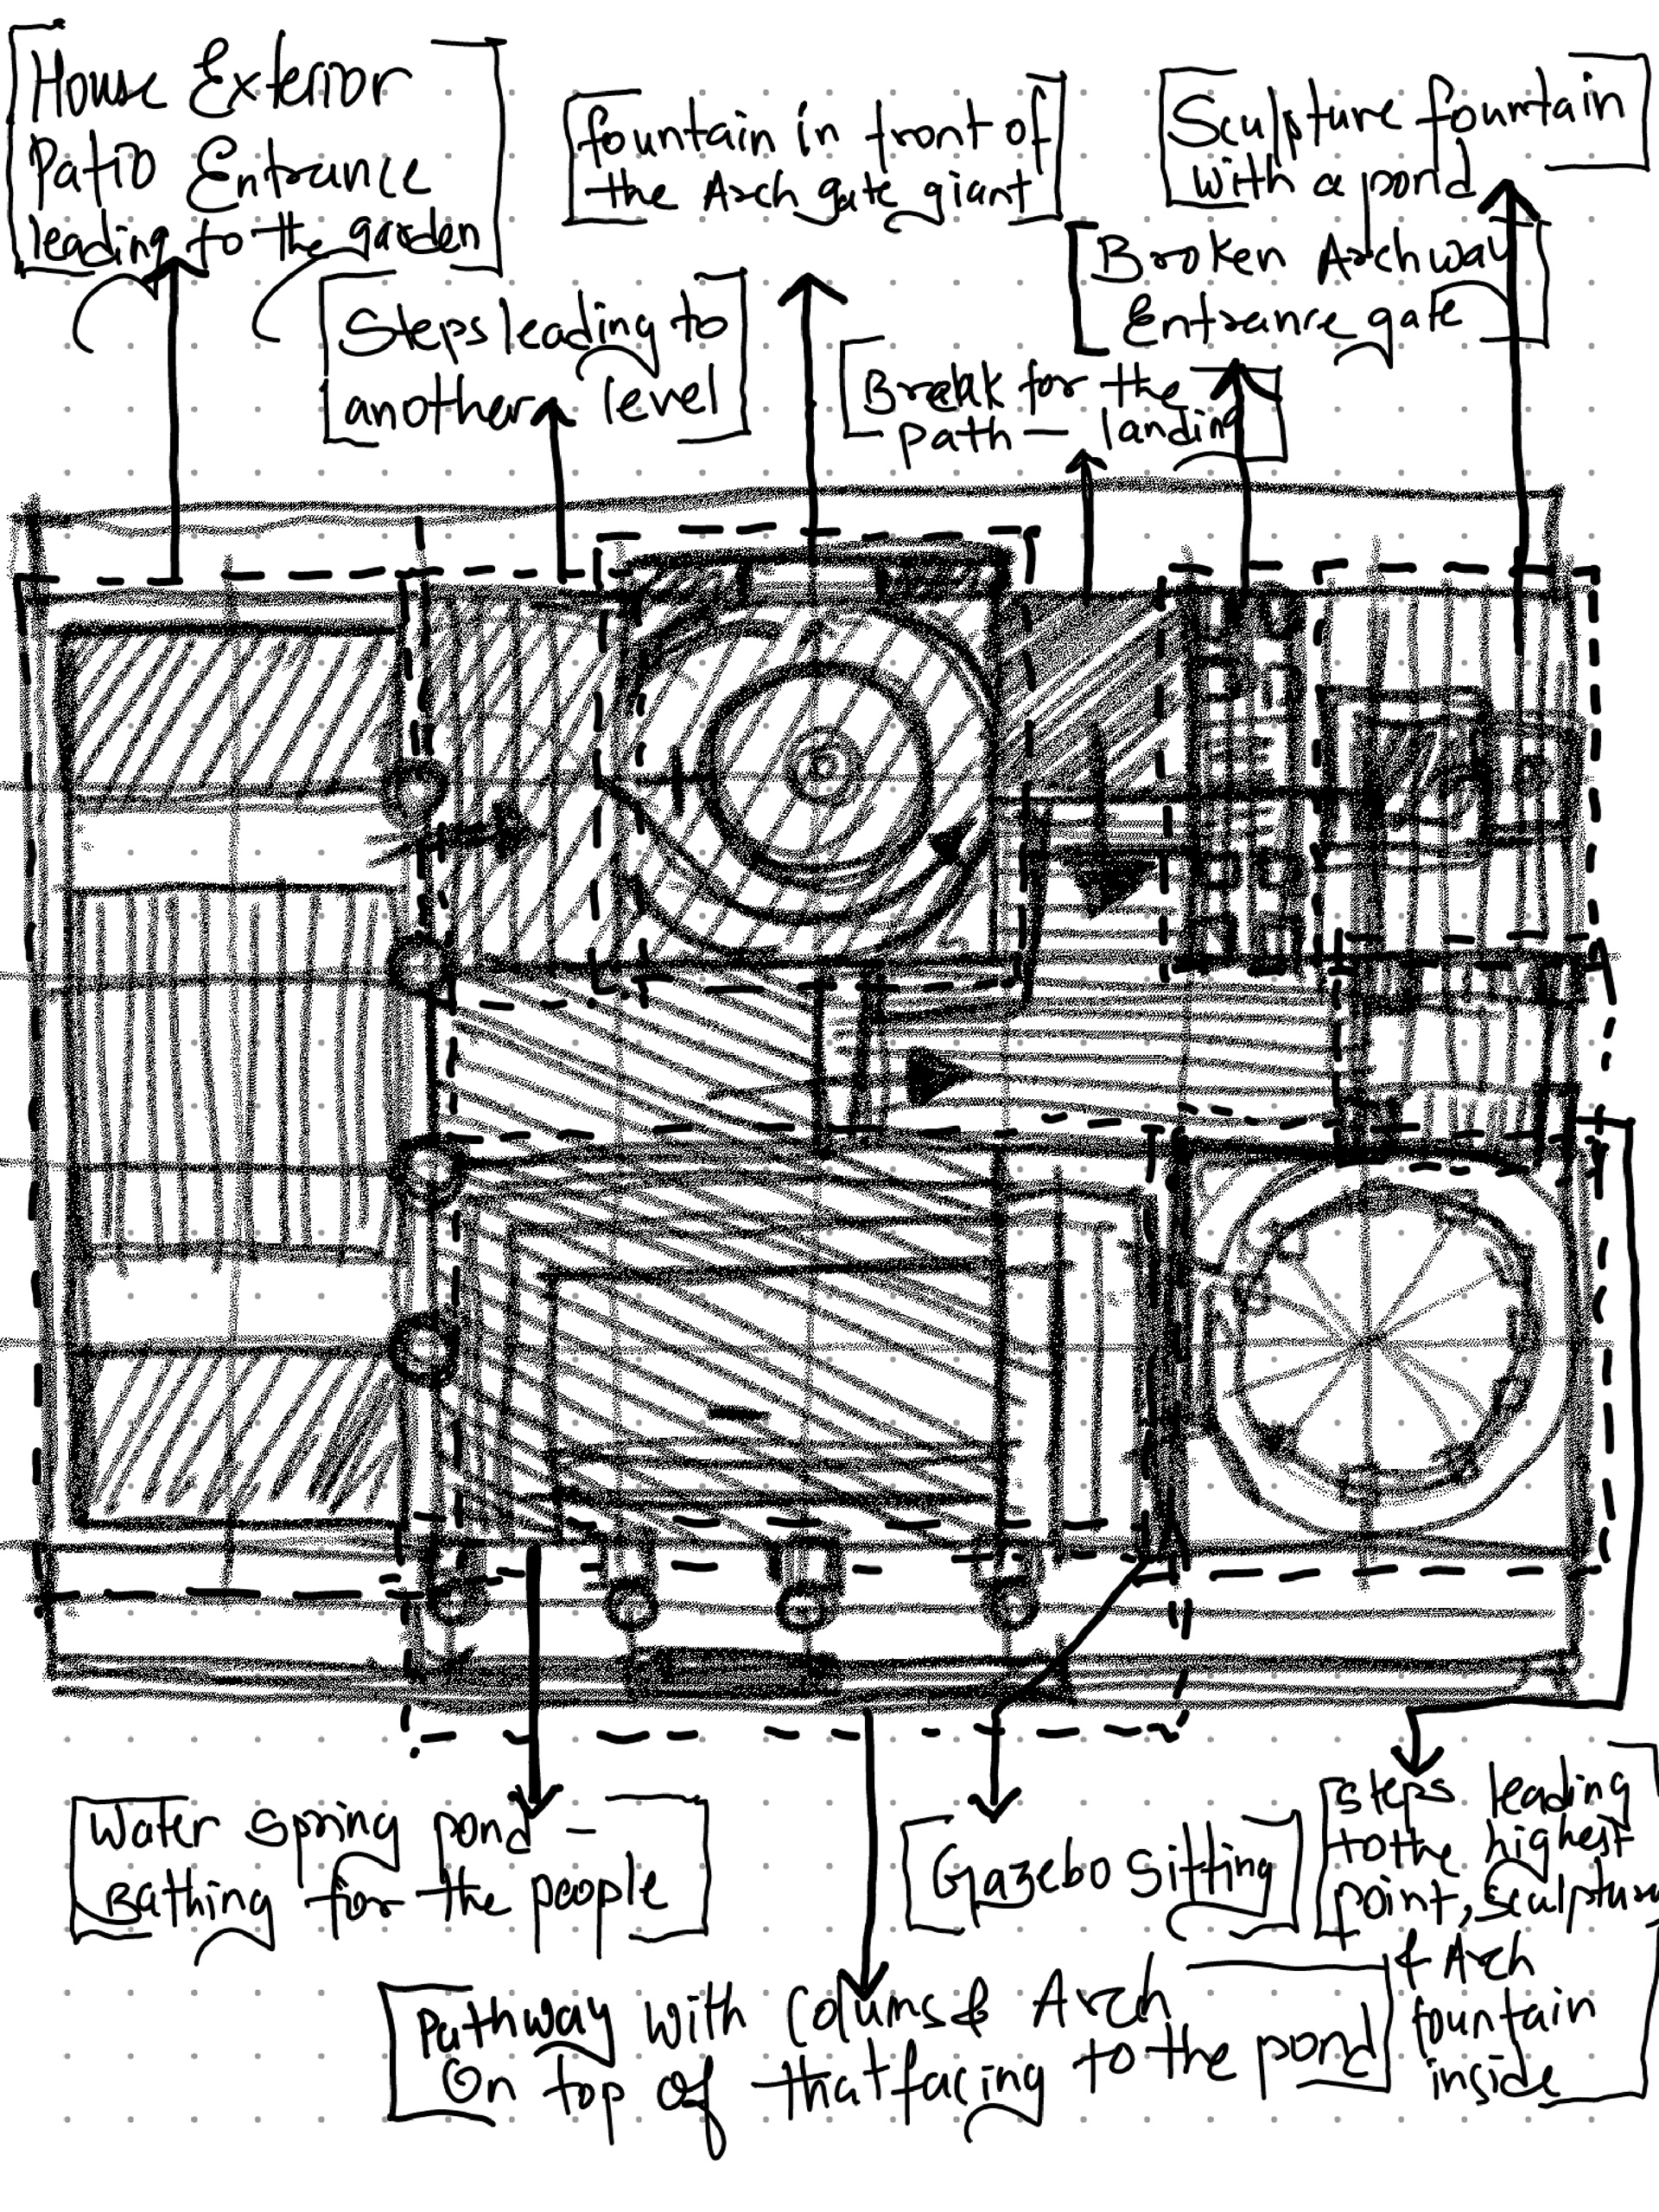 House Exterior
Patio Entrance
leading to the garden
fountain in front of
the Arch gate giant
Sculpture fountain
with a pond
Broken Archway
Entrance gate
Steps leading to
another level
Break for the
path — landing
Water spring pond –
Bathing for the people
Gazebo Sitting
steps leading
to the highest
point, sculpture
& Arch
fountain
inside
Pathway with Colums & Arch
On top of that facing to the pond